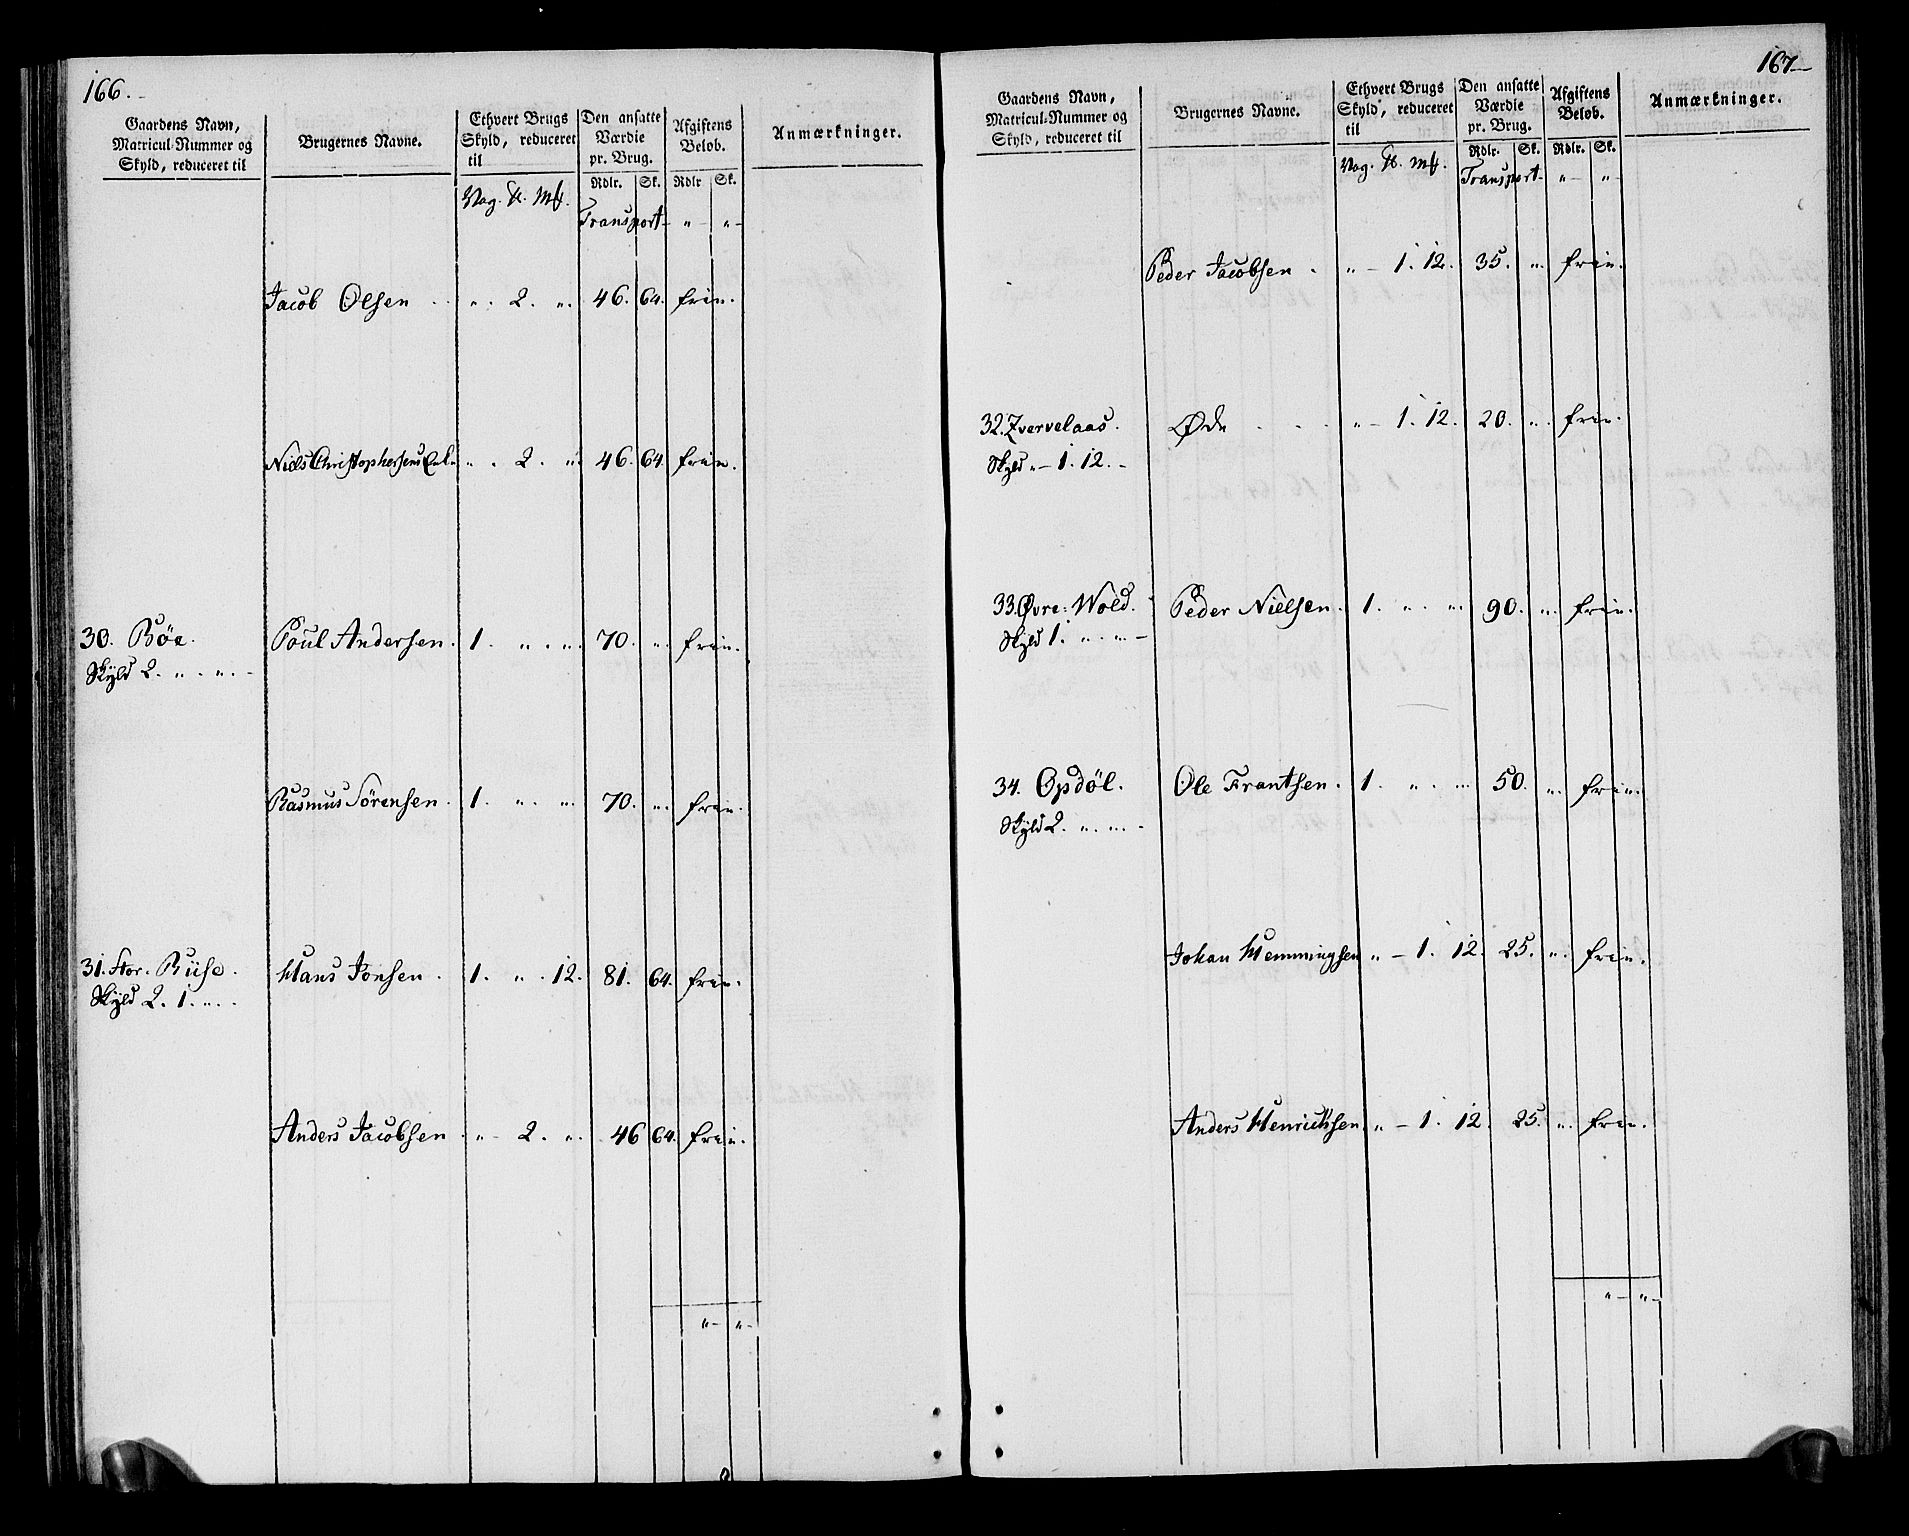 166.
Gaardens Navn, Matricul-Nummer og Skyld, reduceret til
Brugernes Navne.
Ethvert Brugs Skyld, reduceret til
Den ansatte Værdie pr. Brug.
Afgiftens Beløb.
Anmærkninger.
Rdlr. Sk. Rdlr Sk.
Vog. ℔. Mk.
Transport - „ - „ -
Jacob Olsen „ . 2. „ . 46. 64. frie.
Niels Christophersens Enke „ . 2. „ 46. 64. frie.
30. Böe. Poul Andersen. 1. „ . „ . 70. „ . frie.
Skyld 2. „ . „ . -
Rasmus Sörensen. 1. „ . „ . 70. „ . frie.
31. Stor-Riise. Hans Jonsen. 1. „ . 12. 81. 64. frie.
Skyld 2. 1. „ . -
Anders Jacobsen „ - 2. „ . 46 64. frie.
„ - „ -
167
Gaardens Navn, Matricul-Nummer og Skyld, reduceret til
Brugernes Navne.
Ethvert Brugs Skyld, reduceret til
Den ansatte Værdie pr. Brug.
Afgiftens Beløb.
Anmærkninger.
Rdlr. Sk. Rdlr. Sk.
Vog. ℔. Mk.
Transport - „ - „ -
Peder Jacobsen . „ - 1. 12. 35. „ . frie.
32. Qvervelaas. Øde . . . „ - 1. 12. 20. „ . frie.
Skyld „ - 1. 12. -
33. Øvre: Wold. Peder Nielsen. 1. „ . „ 90. „ . frie.
Skyld 1. „ . „ -
34. Opdöl. Ole Frantsen. 1. „ . „ 50. „ . frie.
Skyld 2. „ . „ . -
Johan Hemmingsen „ - 1. 12. 25. „ . frie.
Anders Henrichsen „ - 1. 12. 25. „ . frie.
„ - „ -